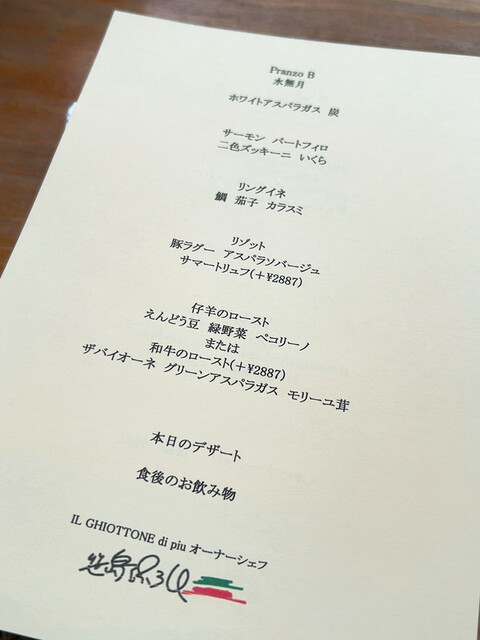 Pranzo B
水無月
ホワイトアスパラガス 炭
サーモン パートフィロ
二色ズッキーニ いくら
リングイネ
鯛 茄子 カラスミ
リゾット
豚ラグー アスパラソバージュ
サマートリュフ(+¥2887)
仔羊のロースト
えんどう豆 緑野菜 ペコリーノ
または
和牛のロースト(+¥2887)
ザバイオーネ グリーンアスパラガス モリーユ茸
本日のデザート
食後のお飲み物
IL GHIOTTONE di piu オーナーシェフ